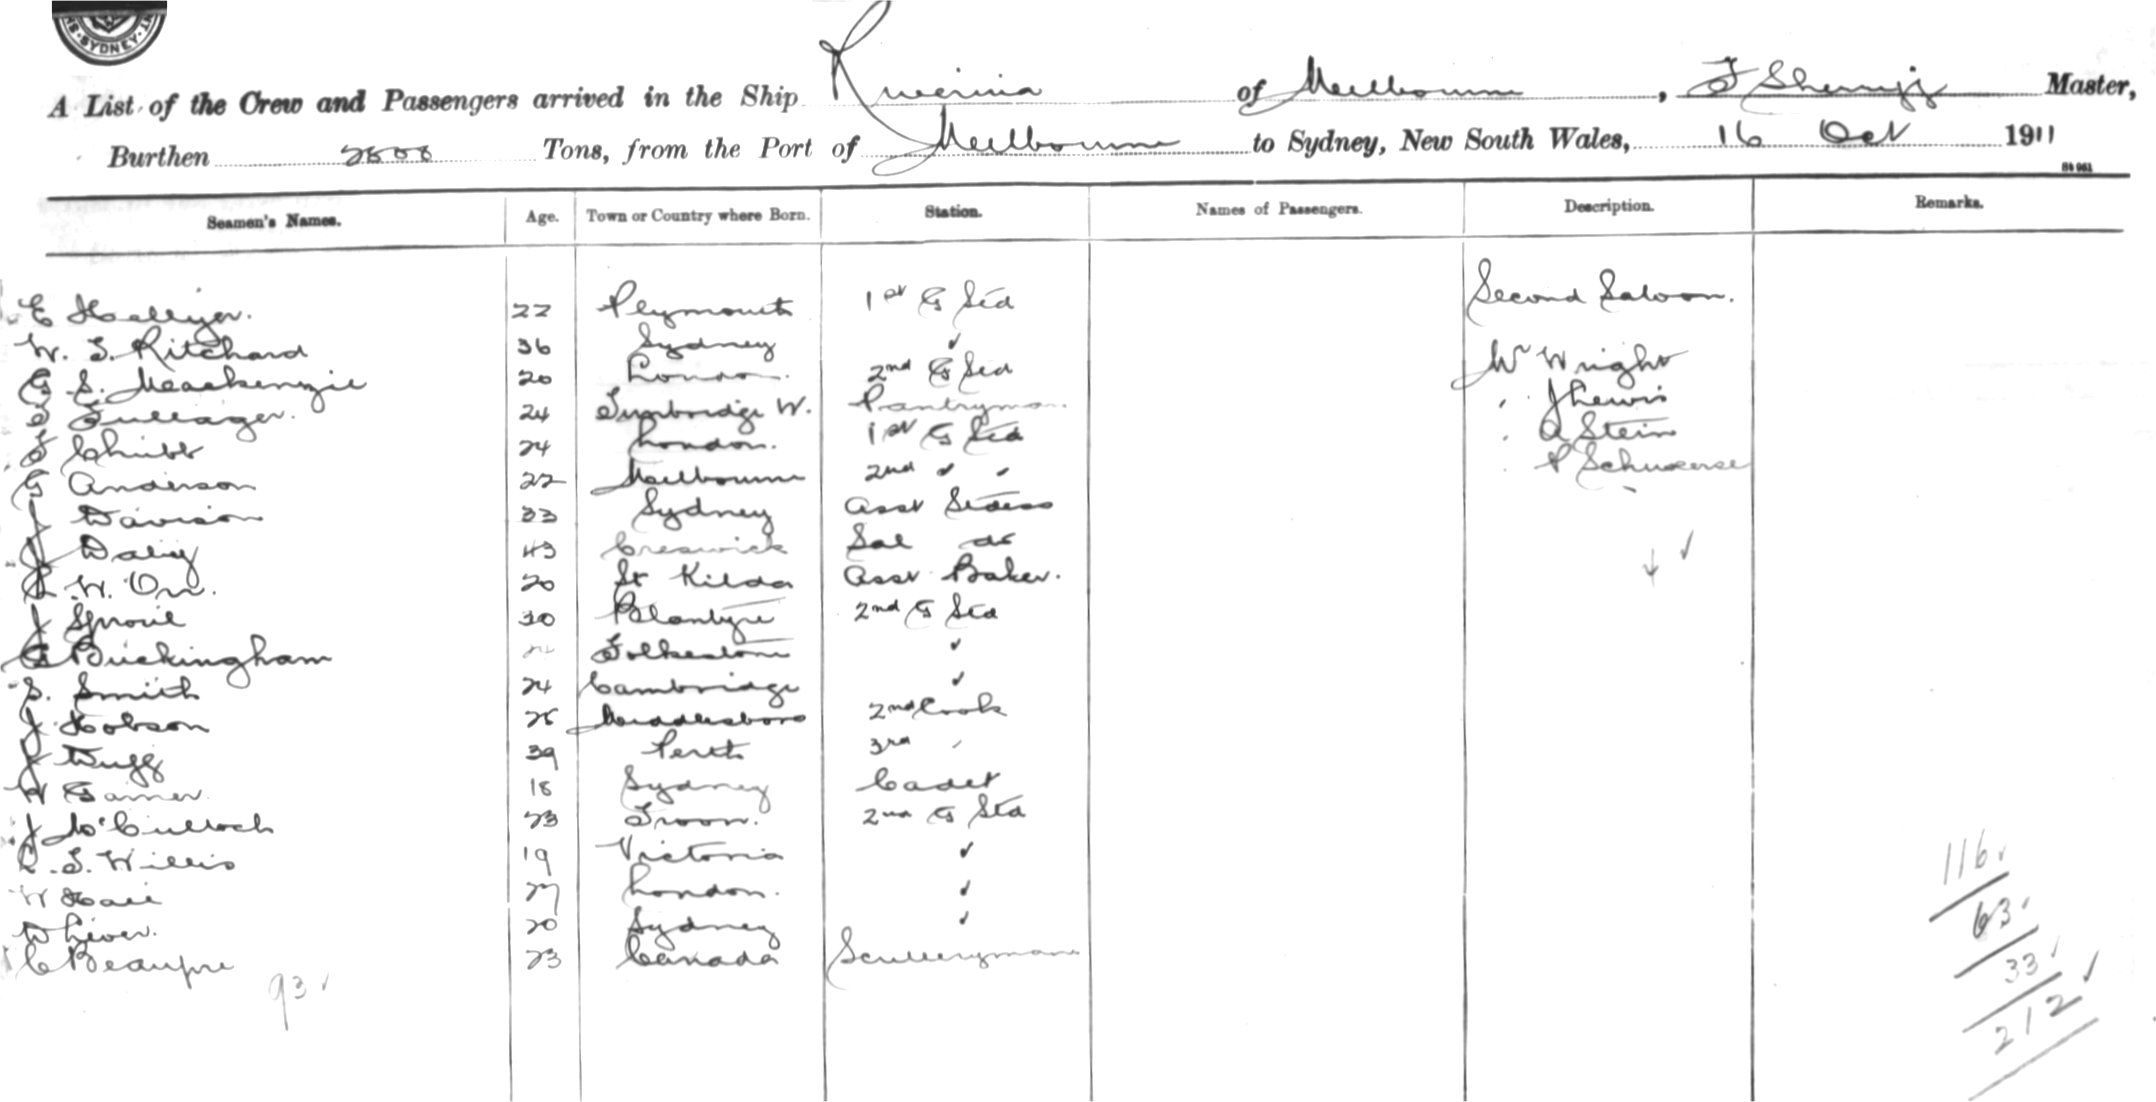 SYDNEY
A List of the Crew and Passengers arrived in the Ship Riverina of Melbourne, Master,
Burthen Tons, from the Port of Melbourne to Sydney, New South Wales, 16 Oct 1911
Seamen's Names. Age. Town or Country where Born. Station. Names of Passengers. Description. Remarks.
Second Saloon.
E Hellyer. 22 Plymouth 1st G Std
W. S. Ritchard 36 Sydney ✓
G S. Mackenzie 20 London. 2nd G Std
Mr Wright
T Fullager. 24 Tunbridge W. Pantryman
" J Lewis
F Chubb 24 London. 1st G Std
" A Stein
G Anderson 22 Melbourne 2nd ✓ ✓
" P
J Davison 33 Sydney Asst Stdess
J Daly 43 Creswick Sal do
W. Orr. 20 St Kilda Asst Baker.
J Sproul 30 Blantyre 2nd G Std
G Buckingham Folkestone ✓
S. Smith 24 Cambridge ✓
J Hobson 26 Middlesboro 2nd Cook
J Duff 39 Perth 3rd "
W Garner 18 Sydney Cadet
J McCulloch 23 Troon. 2nd G Std
S. Willis 19 Victoria ✓
W Hall 27 London. ✓
D Liver. 20 Sydney ✓
C Beaupre 23 Canada Sculleryman
93 ✓
116 ✓
63 ✓
33 ✓
212 ✓